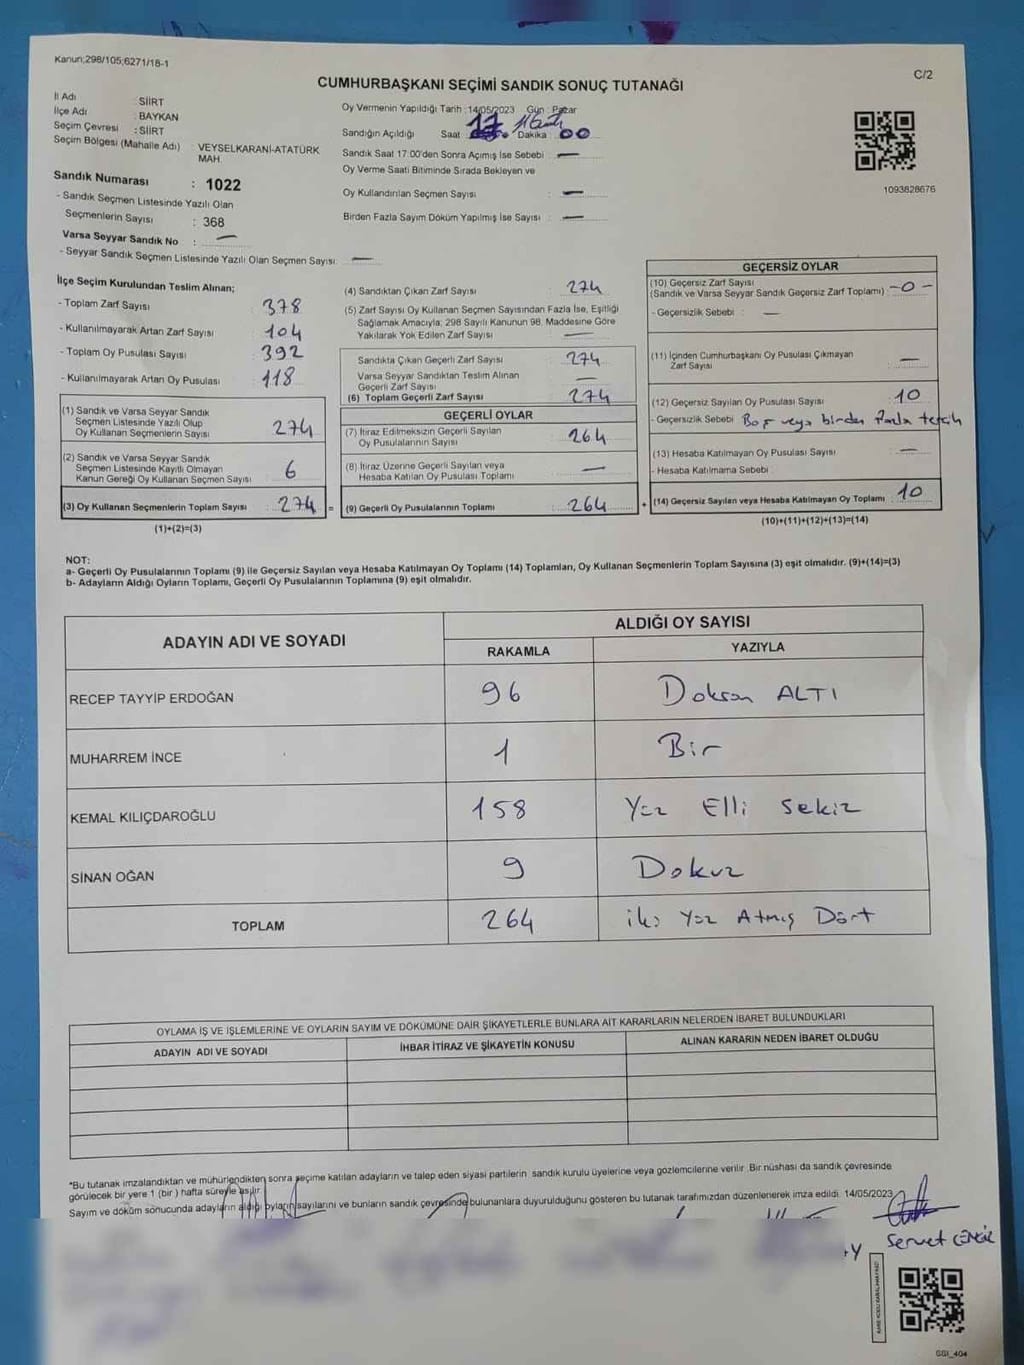 Kanun;298/105;6271/18-1
C/2
CUMHURBAŞKANI SEÇİMİ SANDIK SONUÇ TUTANAĞI
İl Adı : SİİRT
İlçe Adı : BAYKAN
Seçim Çevresi : SİİRT
Seçim Bölgesi (Mahalle Adı) : VEYSELKARANİ-ATATÜRK
MAH.
Sandık Numarası : 1022
- Sandık Seçmen Listesinde Yazılı Olan
Seçmenlerin Sayısı : 368
Varsa Seyyar Sandık No : —
- Seyyar Sandık Seçmen Listesinde Yazılı Olan Seçmen Sayısı: —
Oy Vermenin Yapıldığı Tarih :14/05/2023 Gün : Pazar
Sandığın Açıldığı Saat 17 Dakika : 00
Sandık Saat 17:00'den Sonra Açımış İse Sebebi : —
Oy Verme Saati Bitiminde Sırada Bekleyen ve
Oy Kullandırılan Seçmen Sayısı : —
Birden Fazla Sayım Döküm Yapılmış İse Sayısı : —
1093828676
İlçe Seçim Kurulundan Teslim Alınan;
- Toplam Zarf Sayısı : 378
- Kullanılmayarak Artan Zarf Sayısı : 104
- Toplam Oy Pusulası Sayısı : 392
- Kullanılmayarak Artan Oy Pusulası : 118
(1) Sandık ve Varsa Seyyar Sandık
Seçmen Listesinde Yazılı Olup
Oy Kullanan Seçmenlerin Sayısı : 274
(2) Sandık ve Varsa Seyyar Sandık
Seçmen Listesinde Kayıtlı Olmayan
Kanun Gereği Oy Kullanan Seçmen Sayısı : 6
(3) Oy Kullanan Seçmenlerin Toplam Sayısı : 274 =
(1)+(2)=(3)
(4) Sandıktan Çıkan Zarf Sayısı : 274
(5) Zarf Sayısı Oy Kullanan Seçmen Sayısından Fazla İse, Eşitliği
Sağlamak Amacıyla; 298 Sayılı Kanunun 98. Maddesine Göre
Yakılarak Yok Edilen Zarf Sayısı : —
Sandıkta Çıkan Geçerli Zarf Sayısı : 274
Varsa Seyyar Sandıktan Teslim Alınan
Geçerli Zarf Sayısı : —
(6) Toplam Geçerli Zarf Sayısı : 274
GEÇERLİ OYLAR
(7) İtiraz Edilmeksizin Geçerli Sayılan
Oy Pusulalarının Sayısı : 264
(8) İtiraz Üzerine Geçerli Sayılan veya
Hesaba Katılan Oy Pusulası Toplamı : —
(9) Geçerli Oy Pusulalarının Toplamı : 264 +
GEÇERSİZ OYLAR
(10) Geçersiz Zarf Sayısı
(Sandık ve Varsa Seyyar Sandık Geçersiz Zarf Toplamı) : -0-
- Geçersizlik Sebebi : —
(11) İçinden Cumhurbaşkanı Oy Pusulası Çıkmayan
Zarf Sayısı : —
(12) Geçersiz Sayılan Oy Pusulası Sayısı : 10
- Geçersizlik Sebebi Boş veya birden fazla tercih
(13) Hesaba Katılmayan Oy Pusulası Sayısı : —
- Hesaba Katılmama Sebebi :
(14) Geçersiz Sayılan veya Hesaba Katılmayan Oy Toplamı : 10
(10)+(11)+(12)+(13)=(14)
NOT:
a- Geçerli Oy Pusulalarının Toplamı (9) ile Geçersiz Sayılan veya Hesaba Katılmayan Oy Toplamı (14) Toplamları, Oy Kullanan Seçmenlerin Toplam Sayısına (3) eşit olmalıdır. (9)+(14)=(3)
b- Adayların Aldığı Oyların Toplamı, Geçerli Oy Pusulalarının Toplamına (9) eşit olmalıdır.
ADAYIN ADI VE SOYADI
ALDIĞI OY SAYISI
RAKAMLA YAZIYLA
RECEP TAYYİP ERDOĞAN 96 Doksan ALTI
MUHARREM İNCE 1 Bir
KEMAL KILIÇDAROĞLU 158 Yüz Elli Sekiz
SİNAN OĞAN 9 Dokuz
TOPLAM 264 iki Yüz Atmış Dört
OYLAMA İŞ VE İŞLEMLERİNE VE OYLARIN SAYIM VE DÖKÜMÜNE DAİR ŞİKAYETLERLE BUNLARA AİT KARARLARIN NELERDEN İBARET BULUNDUKLARI
ADAYIN ADI VE SOYADI İHBAR İTİRAZ VE ŞİKAYETİN KONUSU ALINAN KARARIN NEDEN İBARET OLDUĞU
*Bu tutanak imzalandıktan ve mühürlendikten sonra seçime katılan adayların ve talep eden siyasi partilerin sandık kurulu üyelerine veya gözlemcilerine verilir. Bir nüshası da sandık çevresinde
görülecek bir yere 1 (bir ) hafta süreyle asılır.
Sayım ve döküm sonucunda adayların aldığı oyların sayılarını ve bunların sandık çevresinde bulunanlara duyurulduğunu gösteren bu tutanak tarafımızdan düzenlenerek imza edildi. 14/05/2023
Servet CENGİZ
SSI_404